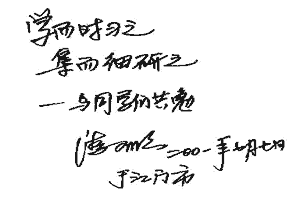 学而时习之
集而细研之
—与同学们共勉
二００一年七月七日
于江门市